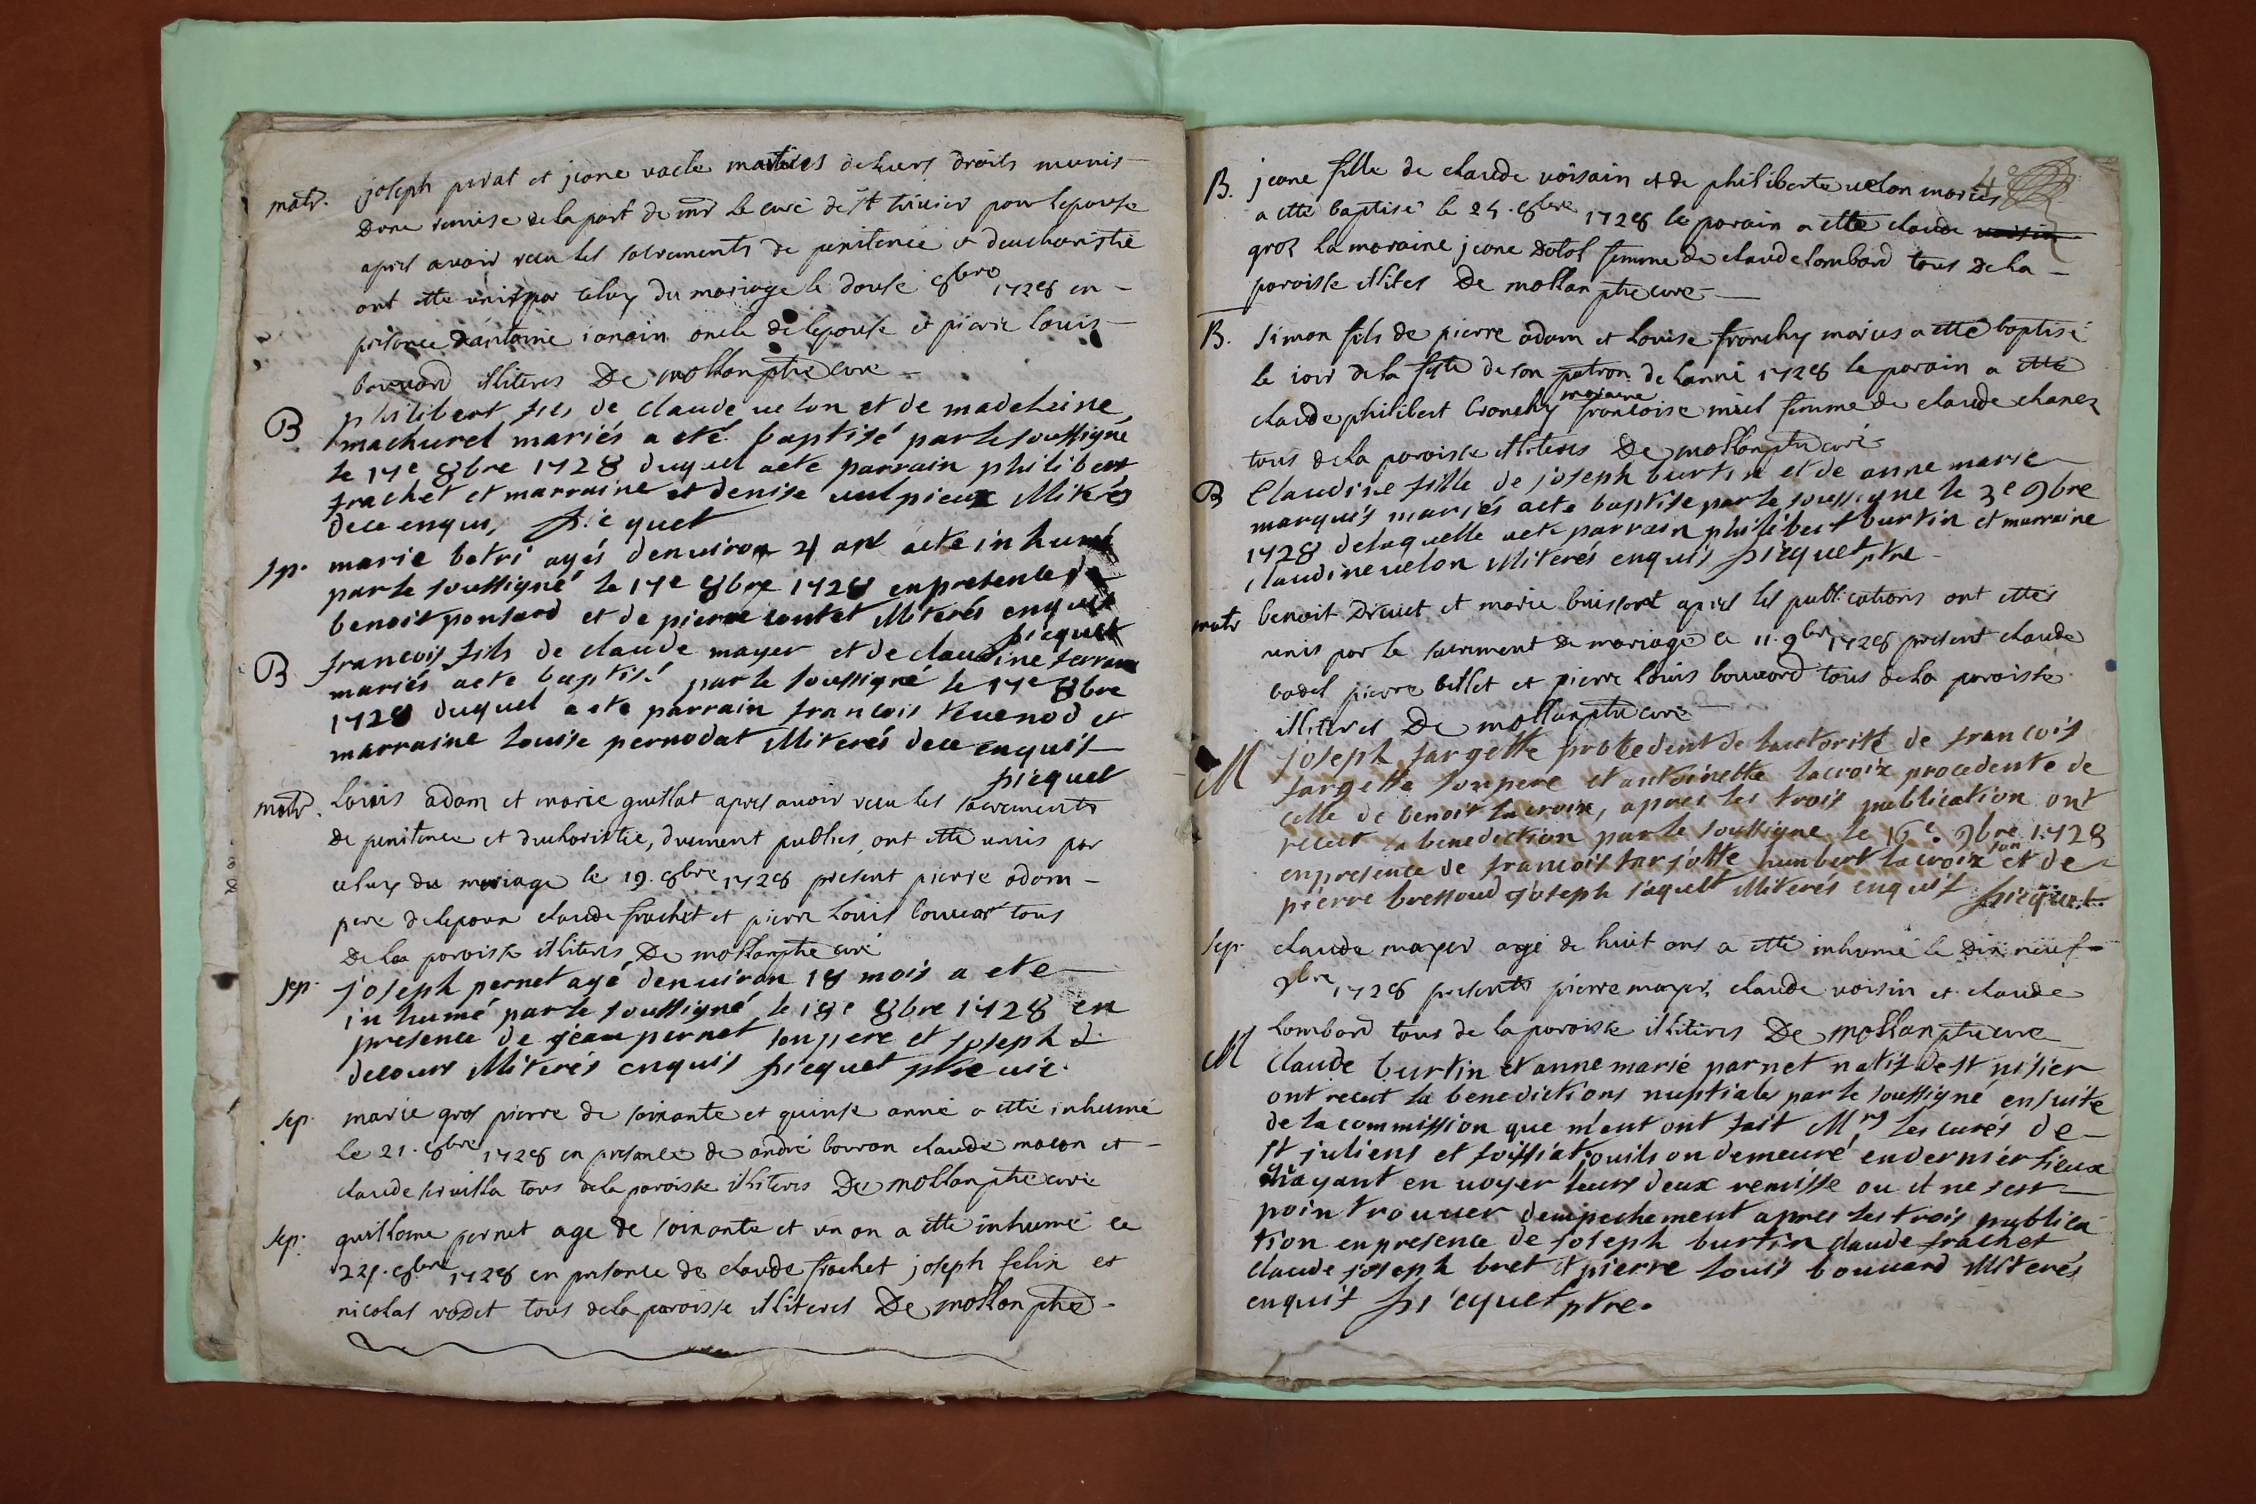 matr. joseph perat et jeane vacle maitres de leurs droits munis
Dune remise de la part de mr le curé de st trivier pour lepouse
apres avoir receu les sacrements de penitence et deucharistie
ont etté unis par celuy du mariage le douse 8bre 1728 en
presance dantoine ianain oncle de lepouse et pierre louis
bouvard illiteres De mollan ptre cure
B philibert fils de claude uelon et de madeleine
machurel mariés a eté baptisé par le soussigné
le 17e 8bre 1728 duquel aete parrain philibert
frachet et marraine et denise uulpieux illiterés
dece enquis, picquet
sp. marie betri agés denuiron 21 ans aete inhumé
par le soussigné le 17e 8bre 1728 en presence de
benoit ponsard et de pierre contet illiterés enquis
picquet
B francois fils de claude mayer et de claudine ferrand
mariés aete baptisé par le soussigné le 17e 8bre
1728 duquel aete parrain francois thuenod et
marraine louise pernodat illiterés dece enquis
picquet
matr. Louis adam et marie guillat apres avoir receu les sacrements
De penitence et deucharistie, duement publies, ont etté unis par
celuy du mariage le 19. 8bre 1728 present pierre adam
pere de lepoux claude frachet et pierre louis bouvar tous
De laa paroisse illiteres De mollan ptre curé
sep. joseph pernet agé denuiron 18 mois a ete
inhumé par le soussigné le 18e 8bre 1728 en
presence de jean pernet son pere et joseph d
decours illiterés enquis picquet ptre vic.
sep. marie gros pierre de soixante et quinse anné a etté inhumé
le 21. 8bre 1728 en presance de andré bouron claude macon et
claude tous de la paroisse illiteres De mollan ptre curé
sep. guillame pernet age de soixante et un an a etté inhumé ce
22. 8bre 1728 en presance de claude frachet joseph felix et
nicolas vadet tous de la paroisse illiteres De mollan ptre
B. jeane fille de claude voisain et de philiberte uelon mariés
a etté baptisé le 24. 8bre 1728 le parain a etté claude voisin
gros la maraine jeane Dolol femme de claude lombard tous de la
paroisse illites De mollan ptre cure
B. simon fils de pierre adam et louise franchy mariés a etté baptisé
le iour de la fete de son patron de lanné 1728 le parain a etté
claude philibert Cronchy maraine francoise miel femme de claude chanez
tous de la paroisse illiteres De mollan ptre curé
B Claudine fille de joseph burtin et de anne marie
marquis mariés aete baptise par le soussigne le 3e 9bre
1728 delaquelle aete parrain philibert burtin et marraine
claudine uelon illiterés enquis picquet ptre
matr benoit Druiet et marie buissort apres les publications ont ettés
unis par le sacrement de mariage ce 11. 9bre 1728 present claude
badel pierre billet et pierre louis bouvard tous de la paroisse
illiteres De mollan ptre curé
M joseph fargette procedent de lautorité de francois
fargette son pere et antoinette lacroix procedente de
celle de benoit lacroix, apres les trois publication ont
receut la benediction par le soussigne le 16e 9bre 1728
en presence de francois farjotte humbert lacroix son et de
pierre bressoud joseph jaquett illiterés enquis picquet
sep. claude mayer agé de huit ans a etté inhumé le Dix neuf
9bre 1728 presents pierre mayer, claude voisin et claude
lombard tous de la paroisse illiteres De mollan ptre cure
M Claude burtin et anne marie parnet natif de st nisier
ont receut la benedictions nuptiales par le soussigné ensuite
de la commission que ment ont fait Mrs les curés de
st juliens et foissiat ouils on demeuré en dernier lieux
mayant en uoyer leurs deux remisse ou il ne sest
poin trouuer dempechement apres les trois publica
tion en presence de joseph burtin claude frachet
claude joseph bret et pierre louis bouuard illiterés
enquis picquet ptre.